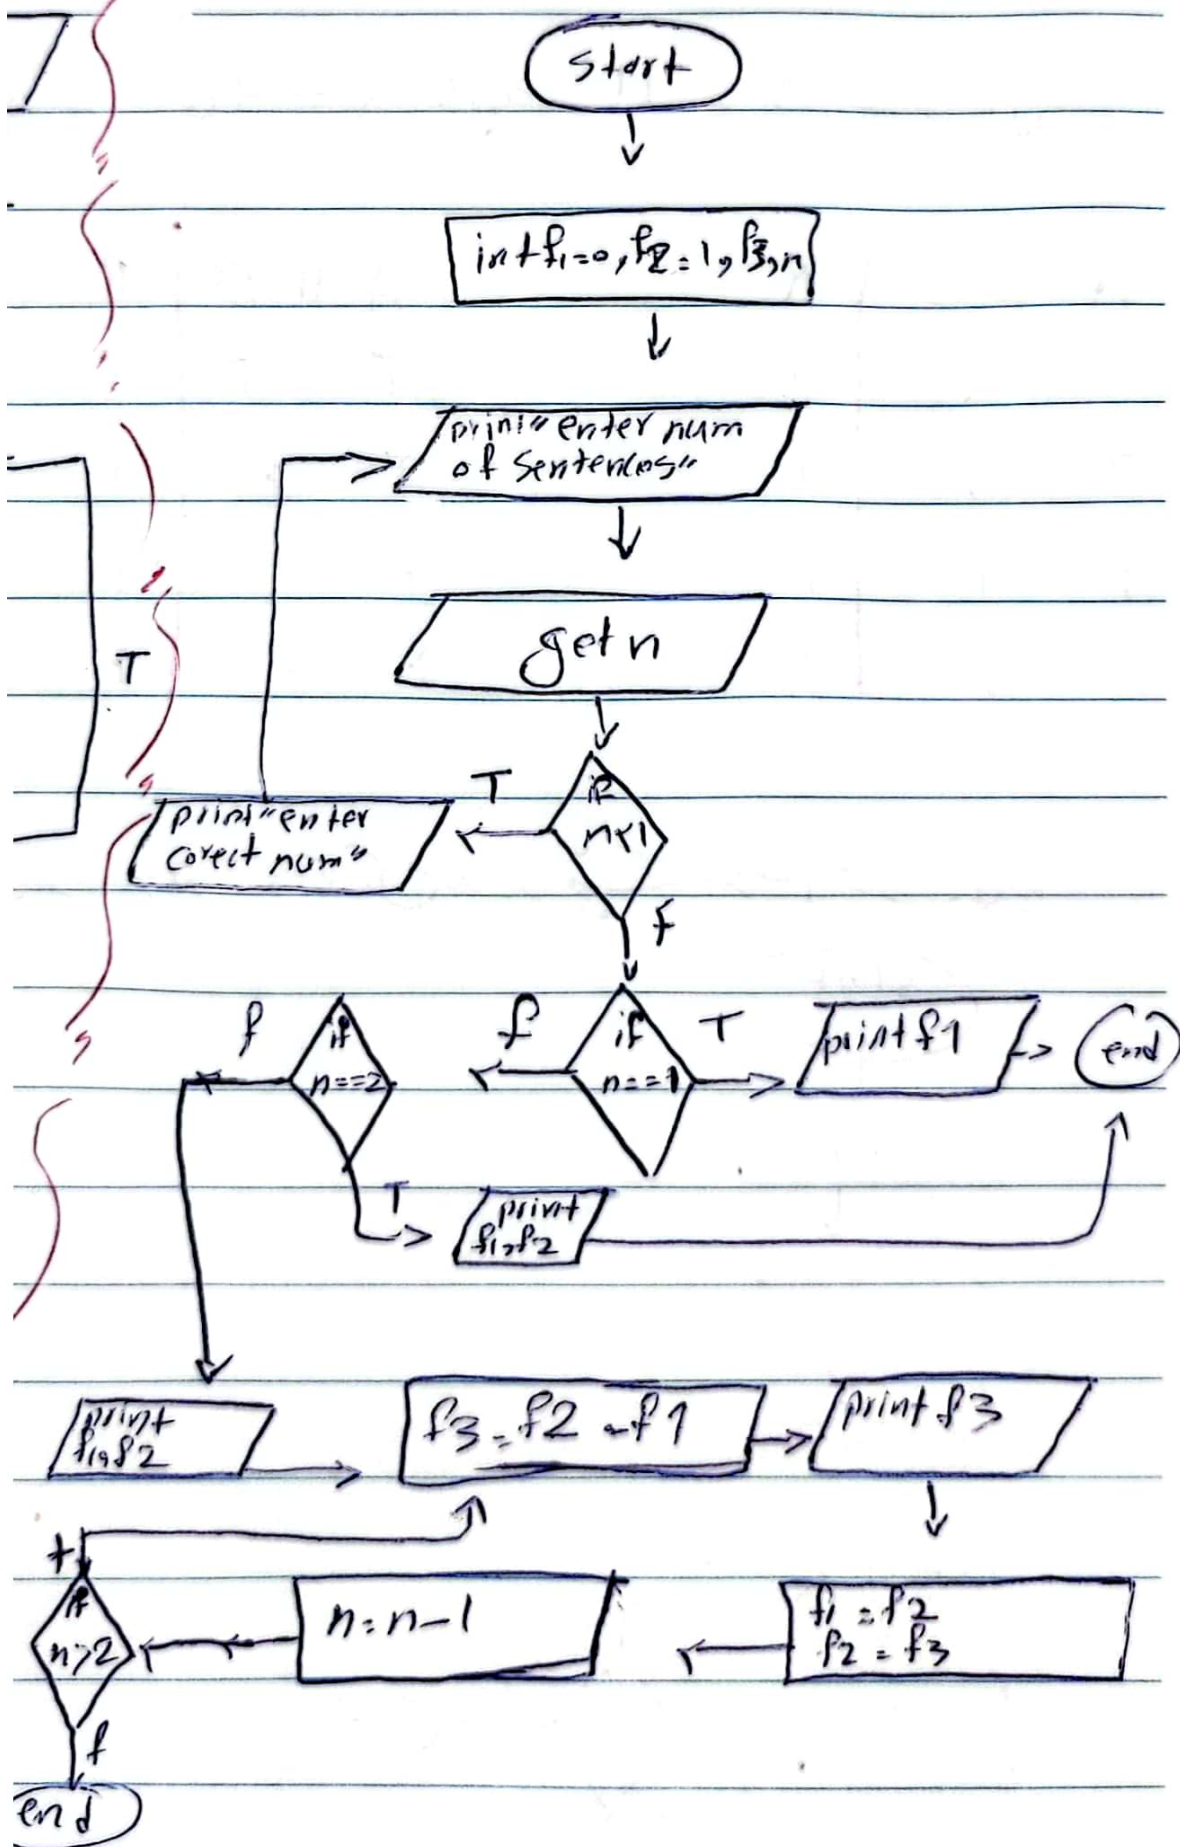 start
int f1=0, f2=1, f3, n
print"enter num
of sentences"
get n
T
T
if
n<1
print"enter
corect num"
f
f
if
n==2
f
if
n==1
T
print f1
end
T
print
f1,f2
print
f1,f2
f3=f2-f1
print f3
t
if
n>2
n=n-1
f1=f2
f2=f3
f
end